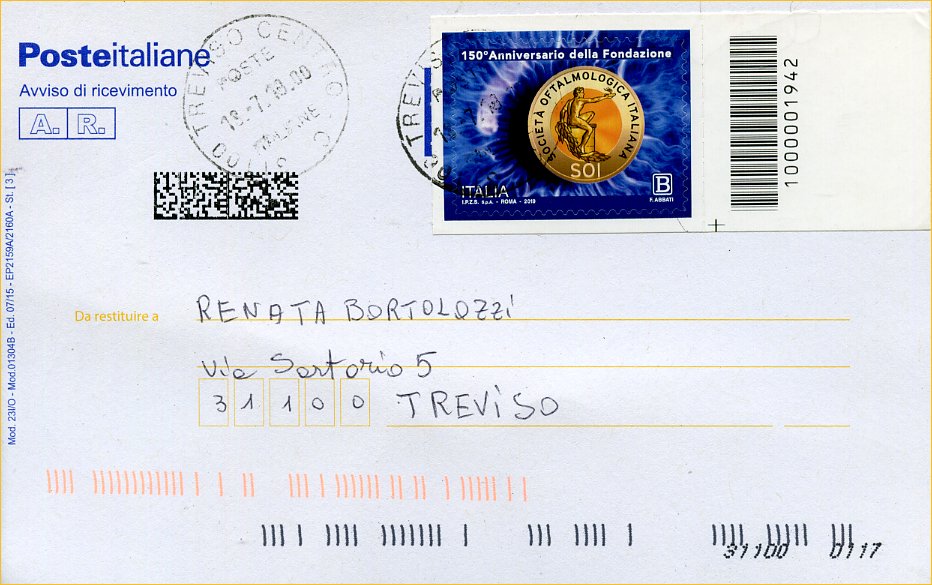 Posteitaliane
Avviso di ricevimento
A. R.
TREVISO CENTRO
POSTE
ITALIANE
150° Anniversario della Fondazione
SOCIETÀ OFTALMOLOGICA ITALIANA
SOI
ITALIA
B
I.P.Z.S. S.p.A. - ROMA - 2019
F. ABBATI
1000001942
TREVISO
Mod. 23I/O - Mod.01304B - Ed. 07/15 - EP2159A/2160A - St. [ 3 ]
Da restituire a RENATA BORTOLOZZi
Via Sartorio 5
31100 TREViSO
31100 0117